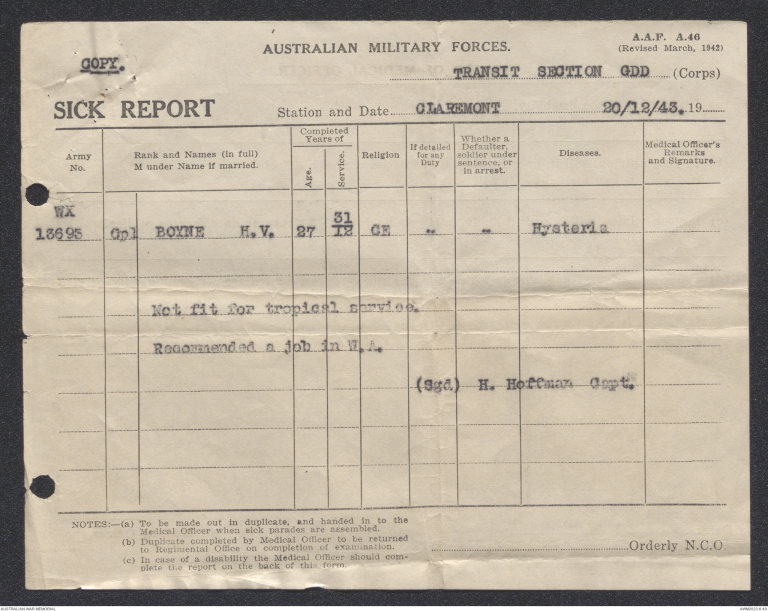 COPY.
AUSTRALIAN MILITARY FORCES.
A.A.F. A.46
(Revised March, 1942)
TRANSIT SECTION GDD (Corps)
SICK REPORT
Station and Date CLAREMONT 20/12/43. 19
Army
No.
Rank and Names (in full)
M under Name if married.
Completed
Years of
Age.
Service.
Religion
If detailed
for any
Duty
Whether a
Defaulter,
soldier under
sentence, or
in arrest.
Diseases.
Medical Officer's
Remarks
and Signature.
WX
13693 Cpl BOYNE H.V. 27 31/12 CE " " Hysteria
Not fit for tropical service.
Recommended a job in W.A.
(Sgd) H. Hoffman Capt.
NOTES:—(a) To be made out in duplicate, and handed in to the
Medical Officer when sick parades are assembled.
(b) Duplicate completed by Medical Officer to be returned
to Regimental Office on completion of examination.
(c) In case of a disability the Medical Officer should com-
plete the report on the back of this form.
Orderly N.C.O.
AUSTRALIAN WAR MEMORIAL